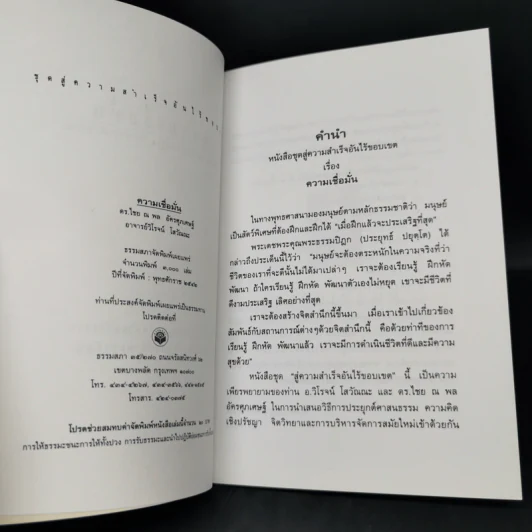 ชุดสู่ความสำเร็จอันไร้ขอบ
ความเชื่อมั่น
ดร.ไชย ณ พล อัครศุภเศรษฐ์
อาจารย์วิโรจน์ โสวัณณะ
ธรรมสภาจัดพิมพ์เผยแพร่
จำนวนพิมพ์ ๓,๐๐๐ เล่ม
ปีที่จัดพิมพ์ : พุทธศักราช ๒๕๔๒
ท่านที่ประสงค์จัดพิมพ์เผยแพร่เป็นธรรมทาน
โปรดติดต่อที่
ธรรมสภา ๓๕/๒๗๐ ถนนจรัลสนิทวงศ์ ๖๒
เขตบางพลัด กรุงเทพฯ ๑๐๗๐๐
โทร.
โทรสาร
โปรดช่วยสมทบค่าจัดพิมพ์หนังสือเล่มนี้จำนวน
การให้ธรรมะชนะการให้ทั้งปวง การรับธรรมะและนำไปปฏิบัติ
คำนำ
หนังสือชุดสู่ความสำเร็จอันไร้ขอบเขต
เรื่อง
ความเชื่อมั่น
ในทางพุทธศาสนามองมนุษย์ตามหลักธรรมชาติว่า มนุษย์
เป็นสัตว์พิเศษที่ต้องฝึกและฝึกได้ "เมื่อฝึกแล้วจะประเสริฐที่สุด"
พระเดชพระคุณพระธรรมปิฎก (ประยุทธ์ ปยุตฺโต) ได้
กล่าวถึงประเด็นนี้ไว้ว่า "มนุษย์จะต้องตระหนักในความจริงที่ว่า
ชีวิตของเราที่จะดีนั้นไม่ได้มาเปล่าๆ เราจะต้องเรียนรู้ ฝึกหัด
พัฒนา ถ้าใครเรียนรู้ ฝึกหัด พัฒนาตัวเองไม่หยุด เขาจะมีชีวิตที่
ดีงามประเสริฐ เลิศอย่างที่สุด
เราจะต้องสร้างจิตสำนึกนี้ขึ้นมา เมื่อเราเข้าไปเกี่ยวข้อง
สัมพันธ์กับสถานการณ์ต่างๆด้วยจิตสำนึกนี้ คือด้วยท่าทีของการ
เรียนรู้ ฝึกหัด พัฒนาแล้ว เราจะมีการดำเนินชีวิตที่ดีและมีความ
สุขด้วย"
หนังสือชุด "สู่ความสำเร็จอันไร้ขอบเขต" นี้ เป็นความ
เพียรพยายามของท่าน อ.วิโรจน์ โสวัณณะ และ ดร.ไชย ณ พล
อัครศุภเศรษฐ์ ในการนำเสนอวิธีการประยุกต์ศาสนธรรม ความคิด
เชิงปรัชญา จิตวิทยาและการบริหารจัดการสมัยใหม่เข้าด้วยกัน